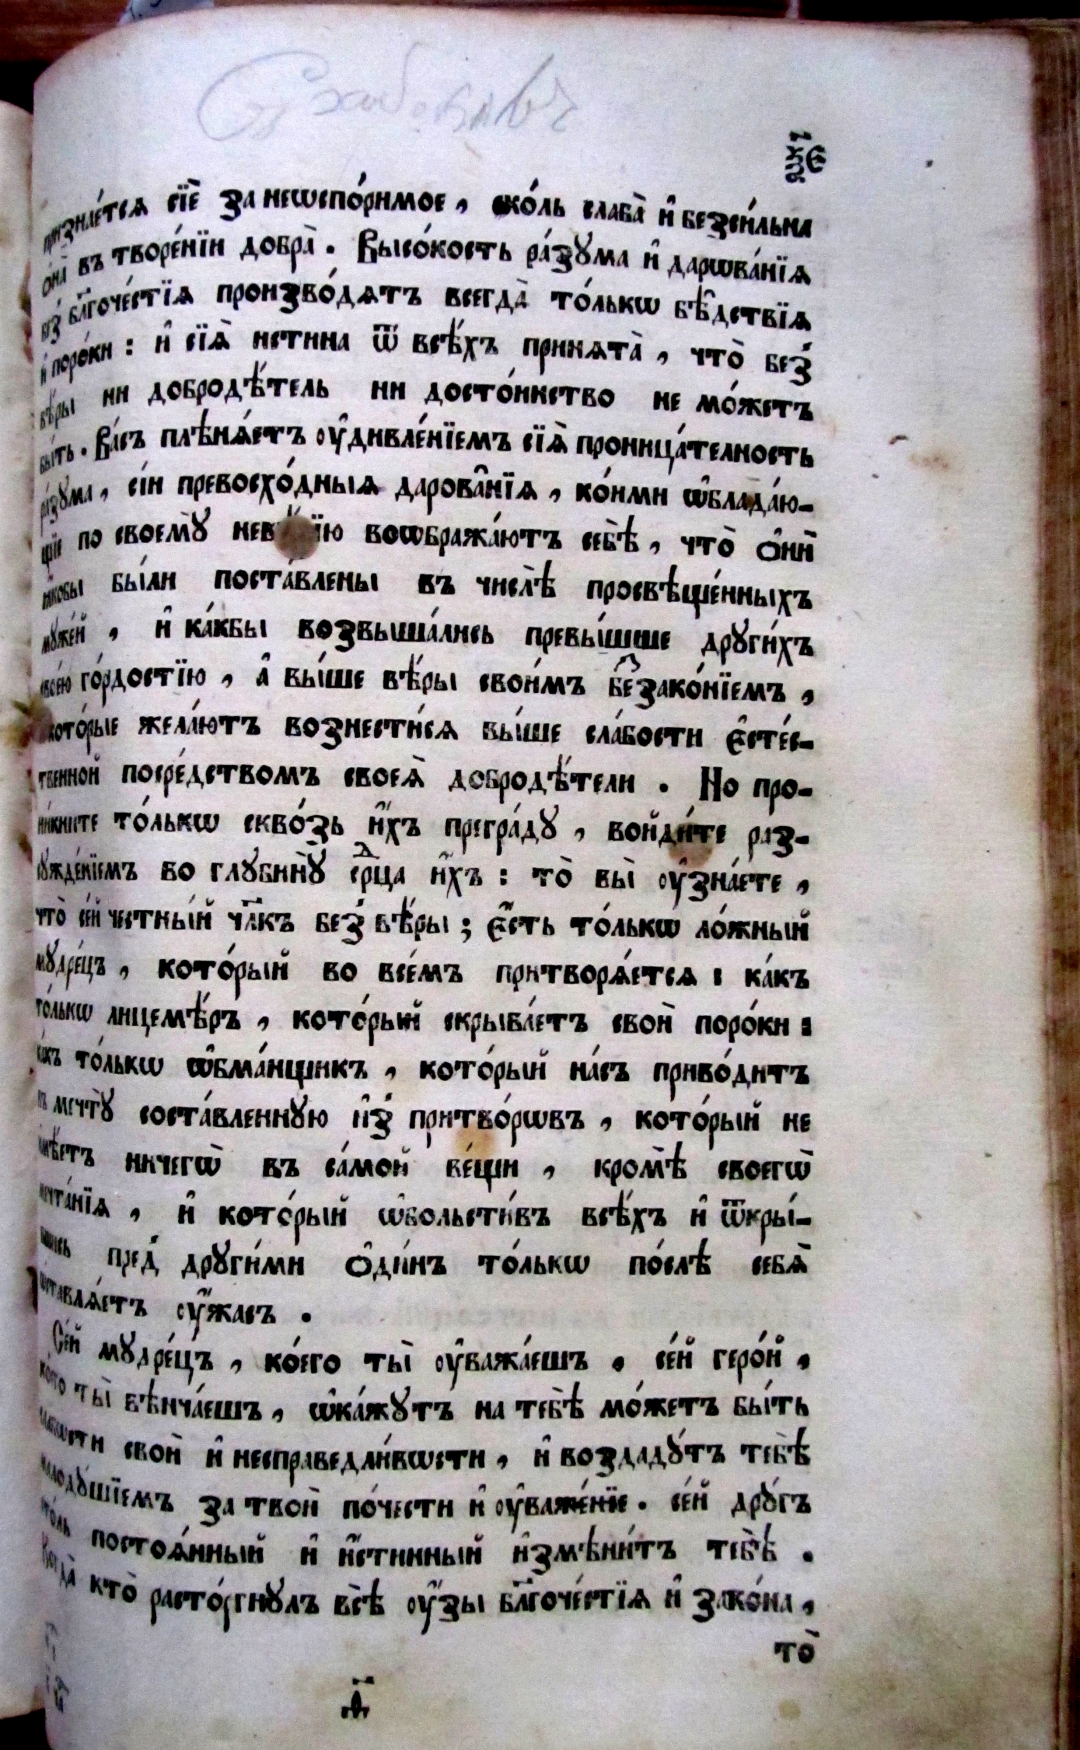 ѯ҃є
признае́тсѧ сїѐ за неѡспо́римое, ско́ль слаба̀ и҆ безси́льна
ѻ҆на̀ въ творе́нїи добра̀. Высо́кость ра́зꙋма и҆ дарѡва́нїѧ
без̾ бл҃гоче́стїѧ произво́дѧтъ всегда̀ то́лькѡ бѣ̑дствїѧ
и҆ поро́ки: и҆ сїѧ̀ истина ѿ всѣ́хъ принѧта̀, что̀ без̾
вѣ́ры ни добродѣ́тель ни досто́инство не мо́жетъ
бы́ть. Ва́съ плѣнѧ́етъ оу҆дивле́нїемъ сїѧ̀ проница́телность
ра́зꙋма, сїи превосхо́дныѧ дарова̑нїѧ, ко́ими ѡ҆блада́ю-
щїе по своемꙋ̀ воѡбража́ютъ себѣ̀, что̀ ѻ҆нѝ
ꙗкобы бы́ли поста́влены въ числѣ̀ просвѣще́нныхъ
мꙋже́й, и҆ ка́кбы возвыша́лись превы́шше дрꙋги́хъ
свое́ю го́рдостїю, а҆ вы́ше вѣ́ры свои́мъ беззако́нїемъ,
кото́рые жела́ютъ вознести́сѧ вы́ше сла́бости є҆сте́с-
твенной посре́дствомъ своеѧ̀ добродѣ́тели. Но про-
никните то́лькѡ сквозь и҆́хъ прегра́дꙋ, войди́те раз-
сꙋжде́нїемъ во глꙋбинꙋ̀ се́рдца и҆́хъ: то̀ вы̀ оу҆зна́ете,
что̀ се́й че́стный чл҃къ без̾ вѣ́ры; є҆́сть то́лькѡ ло́жный
мꙋдре́цъ, кото́рый во все́мъ притворѧ́етсѧ: ка́къ
то́лькѡ лицемѣ́ръ, кото́рый скрыва́етъ своѝ поро́ки:
ка́къ то́лькѡ ѡ҆бма́нщикъ, кото́рый на́съ приво́дитъ
въ мечтꙋ̀ соста́вленную и҆з̾ притво́рѡвъ, кото́рый не
имѣ́етъ ничегѡ̀ въ са́мой ве́щи, кромѣ̀ своегѡ̀
мечта́нїѧ, и҆ кото́рый ѡ҆больсти́въ всѣ́хъ и҆ ѿкры́-
вшись пред̾ дрꙋги́ми ѻ҆ди́нъ то́лькѡ по́слѣ себѧ̀
ѡставлѧ́етъ оу҆́жасъ.
Се́й мꙋдре́цъ, ко́его ты̀ оу҆важа́ешъ. се́й геро́й,
кого ты̀ вѣнча́ешъ, ѡ҆ка́жꙋтъ на тебѣ̀ мо́жетъ бы́ть
сла́бѡсти своѝ и҆ несправедли́вѡсти, и҆ воздадꙋ́тъ тебѣ̀
малодꙋ́шїемъ за твоѝ по́чести и҆ оу҆важе́нїе. се́й дрꙋ́гъ
то́ль постоѧ́нный и҆ и҆́стинный и҆змѣни́тъ тебѣ̀.
Когда̀ кто̀ расто́ргнꙋлъ всѣ̀ оу҆́зы бл҃гоче́стїѧ и҆ зако́на,
то̀